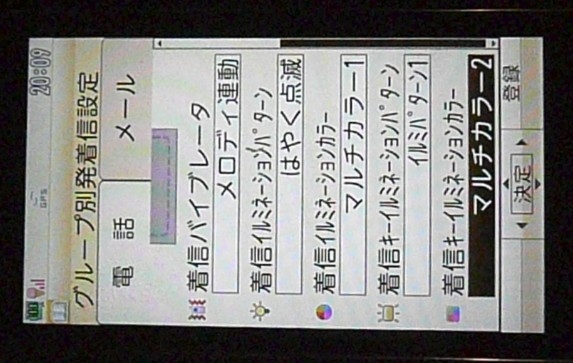 20:09
GPS
グループ別発着信設定
電話
メール
着信バイブレータ
メロディ連動
着信ｲﾙﾐﾈｰｼｮﾝﾊﾟﾀｰﾝ
はやく点滅
着信ｲﾙﾐﾈｰｼｮﾝｶﾗｰ
マルチカラー1
着信キーｲﾙﾐﾈｰｼｮﾝﾊﾟﾀｰﾝ
ｲﾙﾐﾊﾟﾀｰﾝ1
着信キーｲﾙﾐﾈｰｼｮﾝｶﾗｰ
マルチカラー2
決定
登録